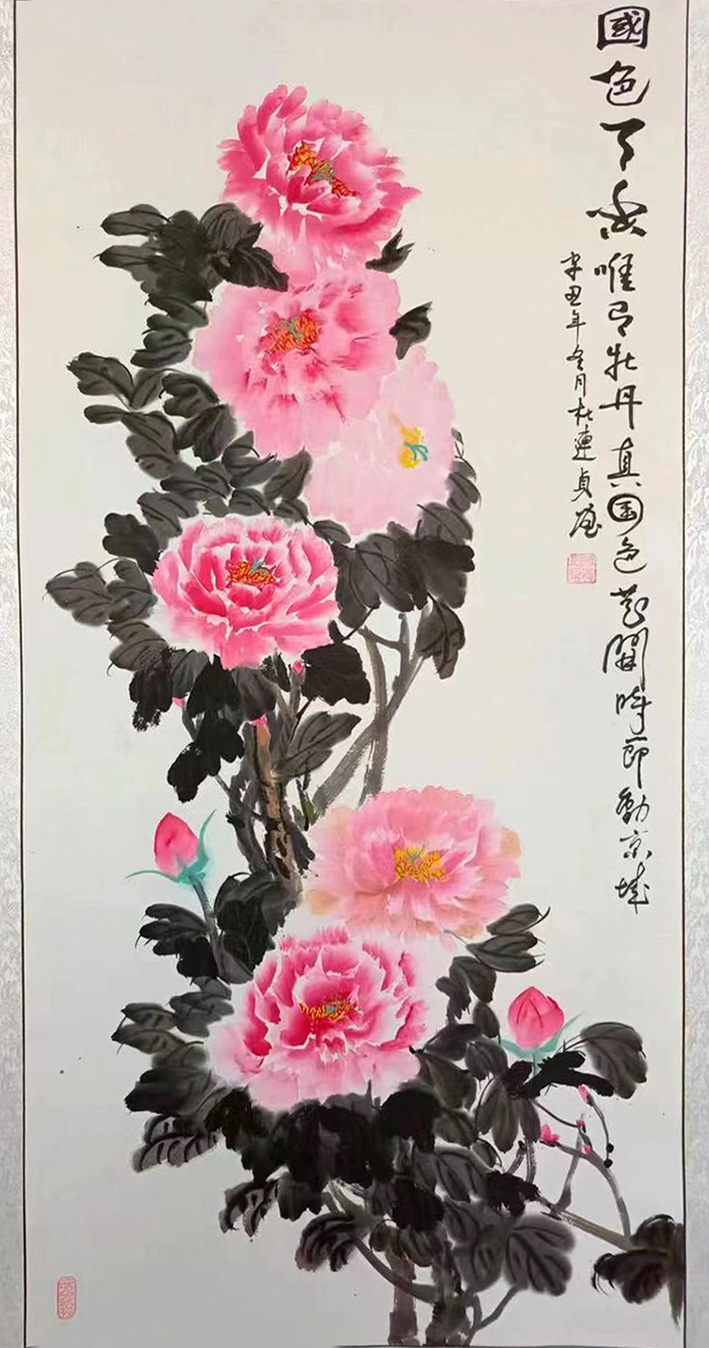 國色天香
唯有牡丹真国色花開時節動京城
辛丑年冬月杜連貞畫